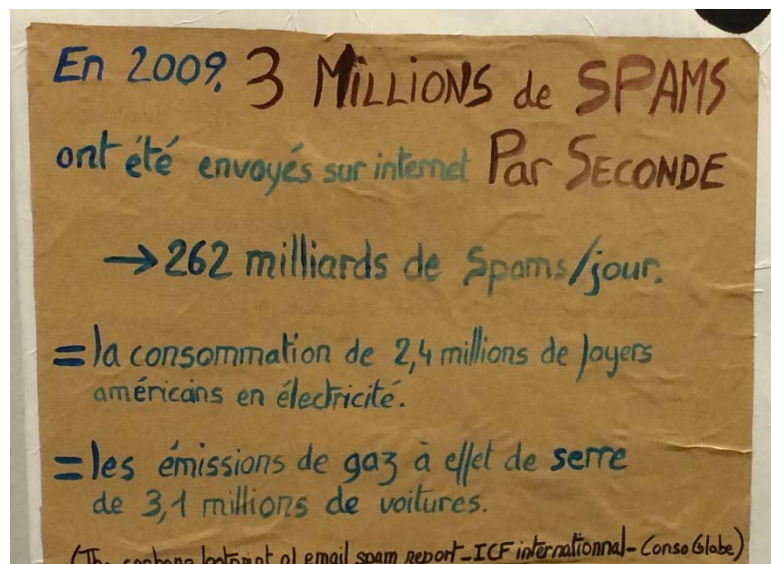 En 2009, 3 MILLIONS de SPAMS
ont été envoyés sur internet Par SECONDE
→ 262 milliards de Spams/jour.
= la consommation de 2,4 millions de foyers
américains en électricité.
= les émissions de gaz à effet de serre
de 3,1 millions de voitures.
(The carbone footprint of email spam report - ICF internationnal - ConsoGlobe)